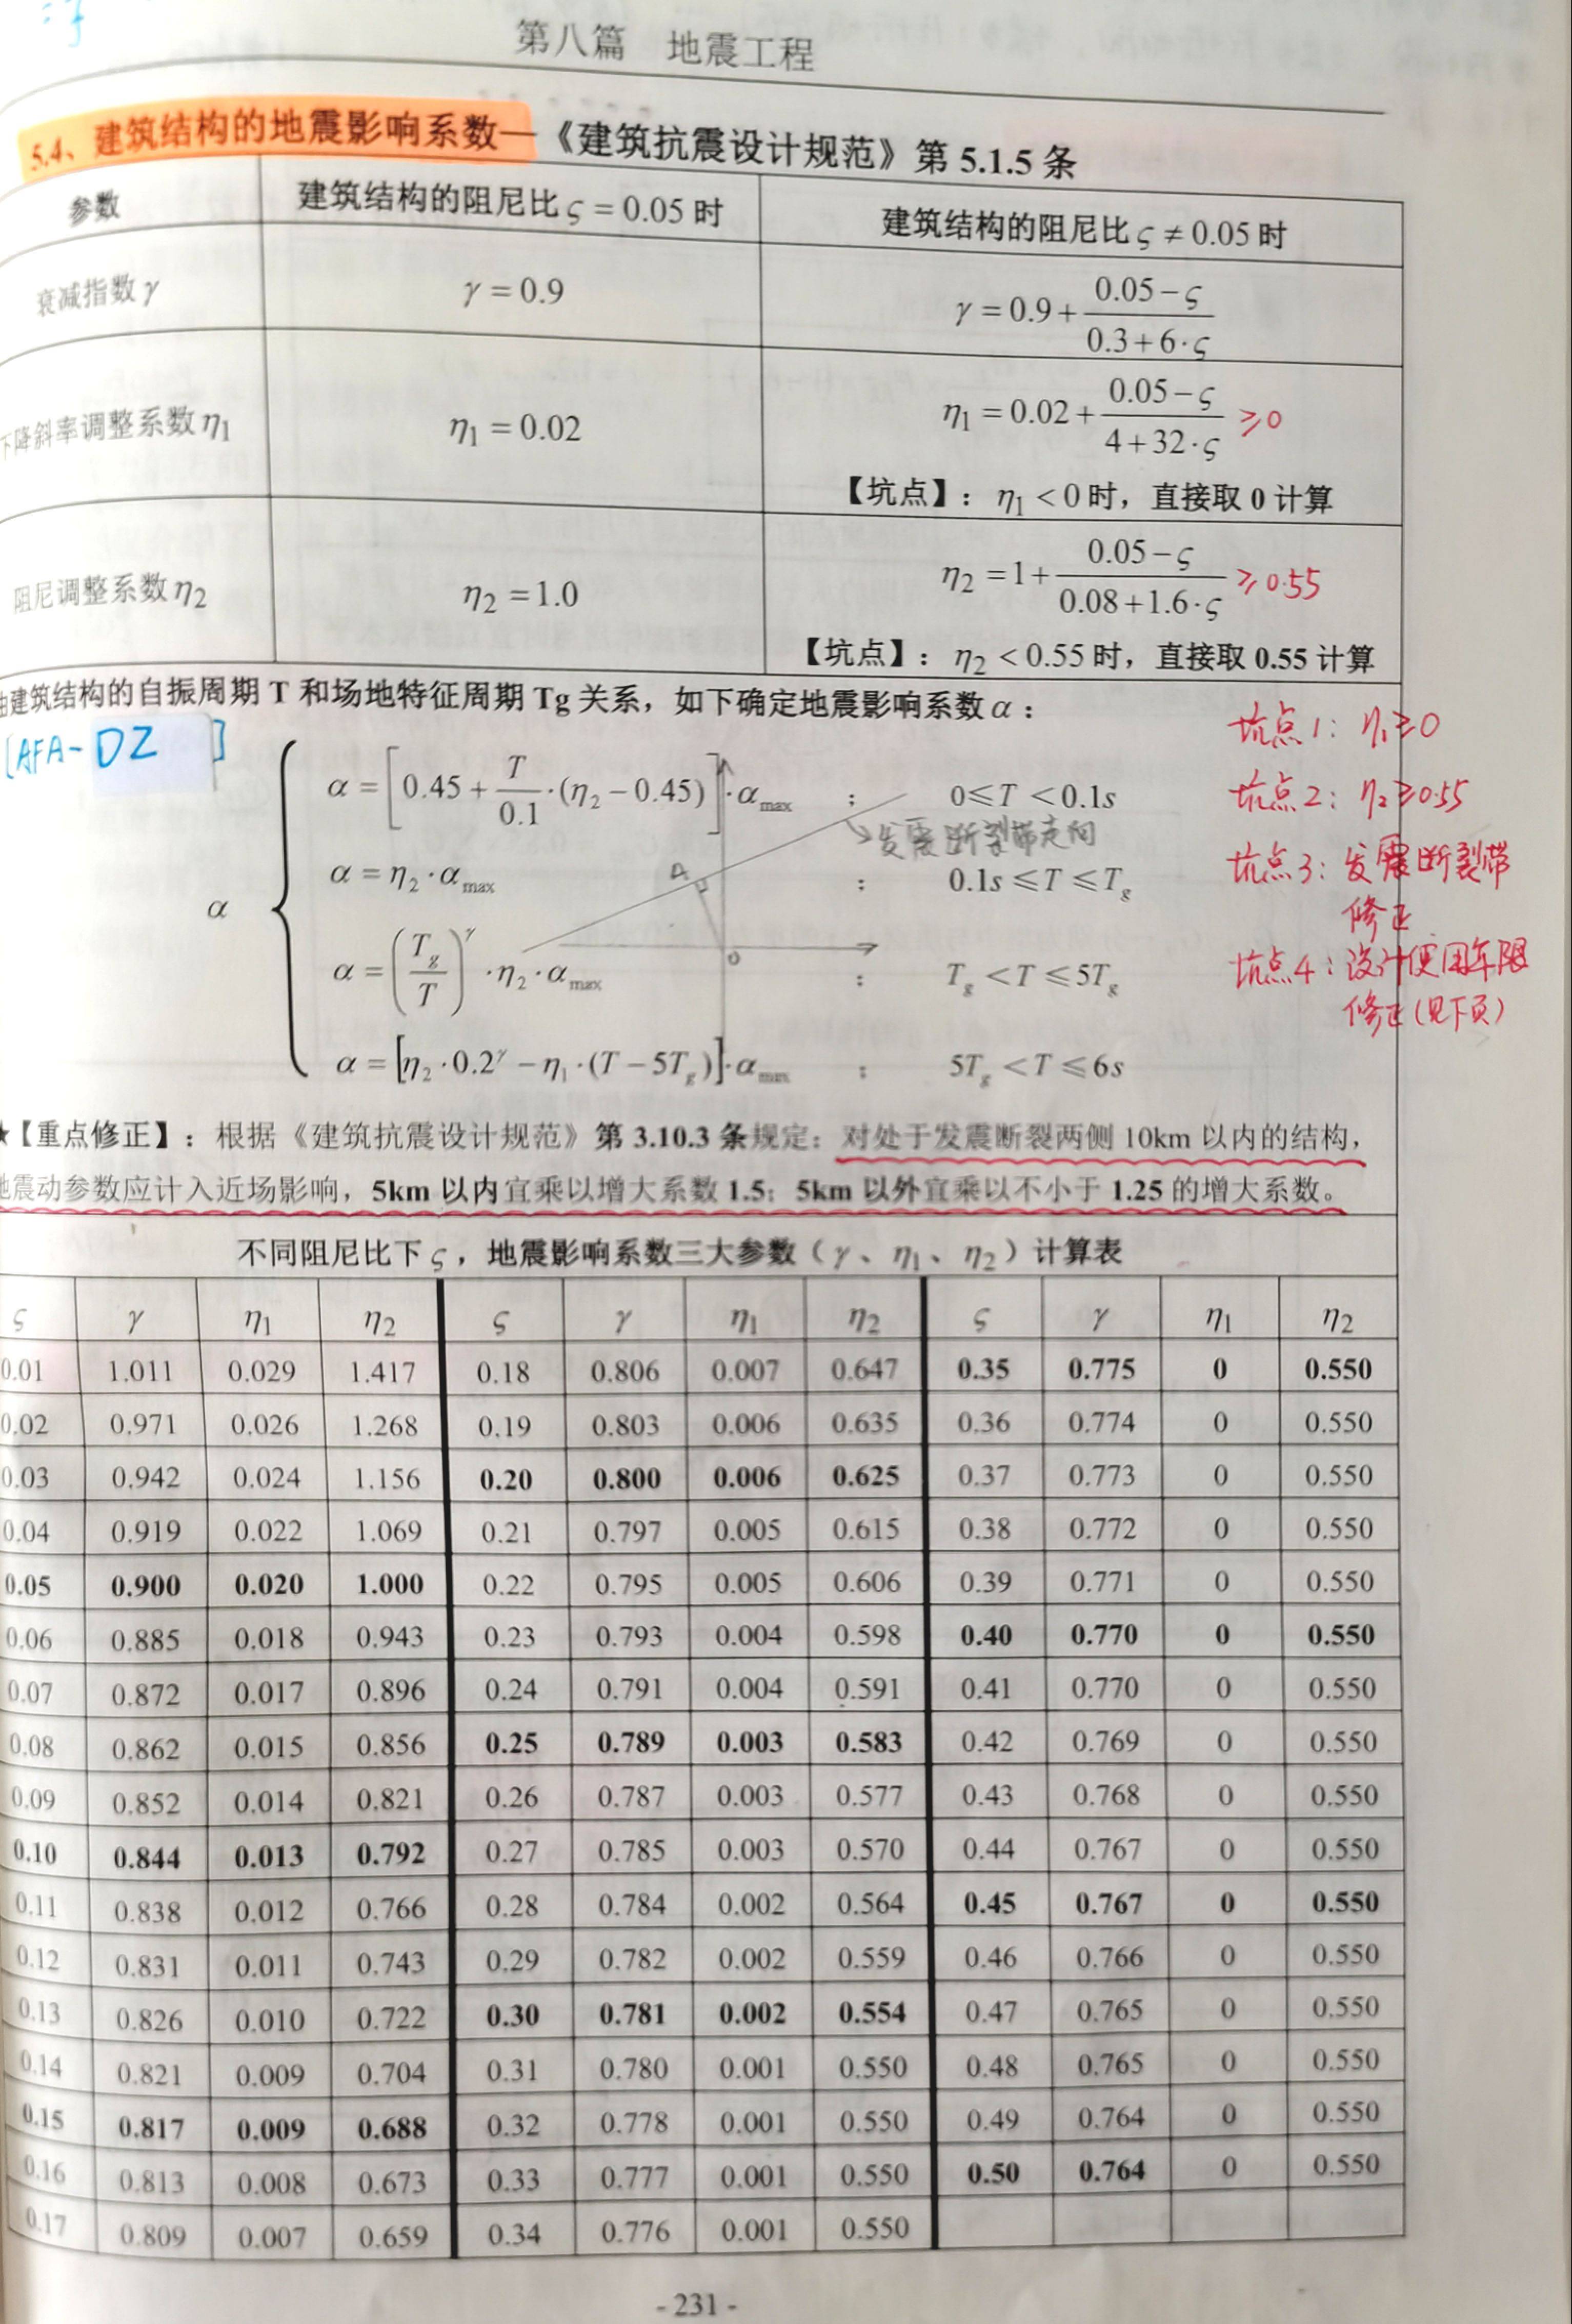 第八篇 地震工程
5.4、建筑结构的地震影响系数—《建筑抗震设计规范》第 5.1.5 条
参数 建筑结构的阻尼比 ς = 0.05 时 建筑结构的阻尼比 ς ≠ 0.05 时
衰减指数 γ γ = 0.9 γ = 0.9 + (0.05 − ς)/(0.3 + 6·ς)
下降斜率调整系数 η₁ η₁ = 0.02 η₁ = 0.02 + (0.05 − ς)/(4 + 32·ς) ≥0
【坑点】: η₁ < 0 时，直接取 0 计算
阻尼调整系数 η₂ η₂ = 1.0 η₂ = 1 + (0.05 − ς)/(0.08 + 1.6·ς) ≥0.55
【坑点】: η₂ < 0.55 时，直接取 0.55 计算
由建筑结构的自振周期 T 和场地特征周期 Tg 关系，如下确定地震影响系数 α：
[AFA-DZ]
α
α = [0.45 + T/0.1 ·(η₂ − 0.45)]·α_max ; 0≤T <0.1s
α = η₂·α_max ; 0.1s ≤T ≤T_g
α = (T_g/T)^γ ·η₂·α_max ; T_g <T ≤5T_g
α = [η₂·0.2^γ − η₁·(T − 5T_g)]·α_max ; 5T_g <T ≤6s
发震断裂带走向
A
O
坑点1: η₁≥0
坑点2: η₂≥0.55
坑点3: 发震断裂带
修正
坑点4: 设计使用年限
修正(见下页)
★【重点修正】：根据《建筑抗震设计规范》第 3.10.3 条规定：对处于发震断裂两侧 10km 以内的结构，
地震动参数应计入近场影响，5km 以内宜乘以增大系数 1.5；5km 以外宜乘以不小于 1.25 的增大系数。
不同阻尼比下 ς，地震影响系数三大参数（γ、η₁、η₂）计算表
ς γ η₁ η₂ ς γ η₁ η₂ ς γ η₁ η₂
0.01 1.011 0.029 1.417 0.18 0.806 0.007 0.647 0.35 0.775 0 0.550
0.02 0.971 0.026 1.268 0.19 0.803 0.006 0.635 0.36 0.774 0 0.550
0.03 0.942 0.024 1.156 0.20 0.800 0.006 0.625 0.37 0.773 0 0.550
0.04 0.919 0.022 1.069 0.21 0.797 0.005 0.615 0.38 0.772 0 0.550
0.05 0.900 0.020 1.000 0.22 0.795 0.005 0.606 0.39 0.771 0 0.550
0.06 0.885 0.018 0.943 0.23 0.793 0.004 0.598 0.40 0.770 0 0.550
0.07 0.872 0.017 0.896 0.24 0.791 0.004 0.591 0.41 0.770 0 0.550
0.08 0.862 0.015 0.856 0.25 0.789 0.003 0.583 0.42 0.769 0 0.550
0.09 0.852 0.014 0.821 0.26 0.787 0.003 0.577 0.43 0.768 0 0.550
0.10 0.844 0.013 0.792 0.27 0.785 0.003 0.570 0.44 0.767 0 0.550
0.11 0.838 0.012 0.766 0.28 0.784 0.002 0.564 0.45 0.767 0 0.550
0.12 0.831 0.011 0.743 0.29 0.782 0.002 0.559 0.46 0.766 0 0.550
0.13 0.826 0.010 0.722 0.30 0.781 0.002 0.554 0.47 0.765 0 0.550
0.14 0.821 0.009 0.704 0.31 0.780 0.001 0.550 0.48 0.765 0 0.550
0.15 0.817 0.009 0.688 0.32 0.778 0.001 0.550 0.49 0.764 0 0.550
0.16 0.813 0.008 0.673 0.33 0.777 0.001 0.550 0.50 0.764 0 0.550
0.17 0.809 0.007 0.659 0.34 0.776 0.001 0.550
- 231 -